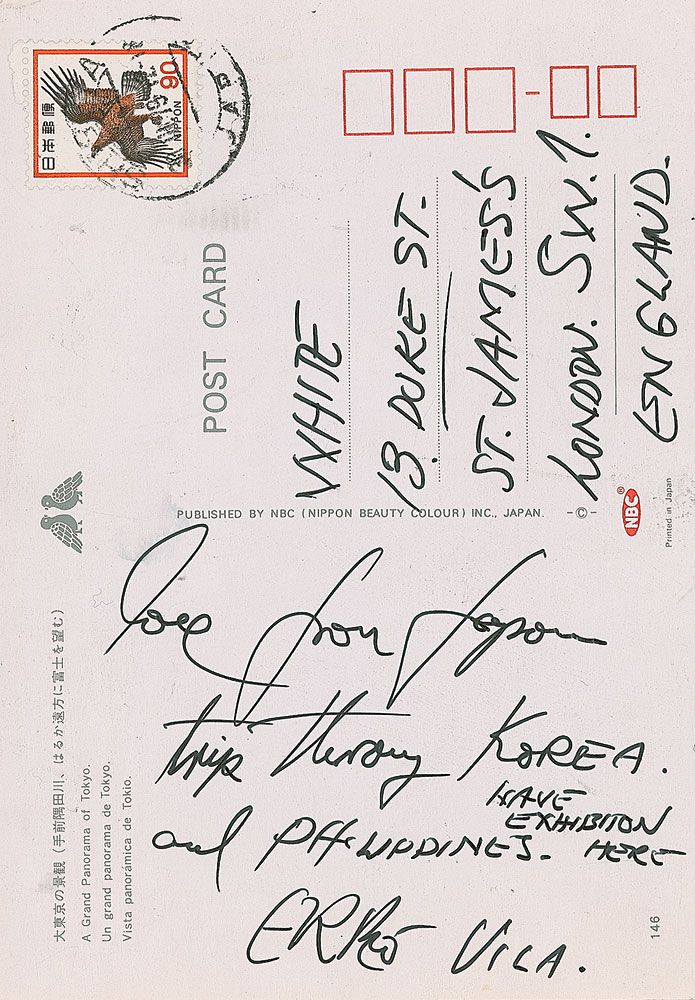 大東京の景観(手前隅田川、はるか遠方に富士を望む)
A Grand Panorama of Tokyo.
Un grand panorama de Tokyo.
Vista panorámica de Tokio.
love from Japan
trip throug KOREA.
and PHILIPPINES.
HAVE
EXHIBITON
HERE
ERRÓ VILA.
146
PUBLISHED BY NBC (NIPPON BEAUTY COLOUR) INC., JAPAN. -©-
NBC®
Printed in Japan
POST CARD
日本郵便
90
NIPPON
WHITE
13 DUKE ST.
ST. JAMES'S
LONDON. S.W.1.
ENGLAND.